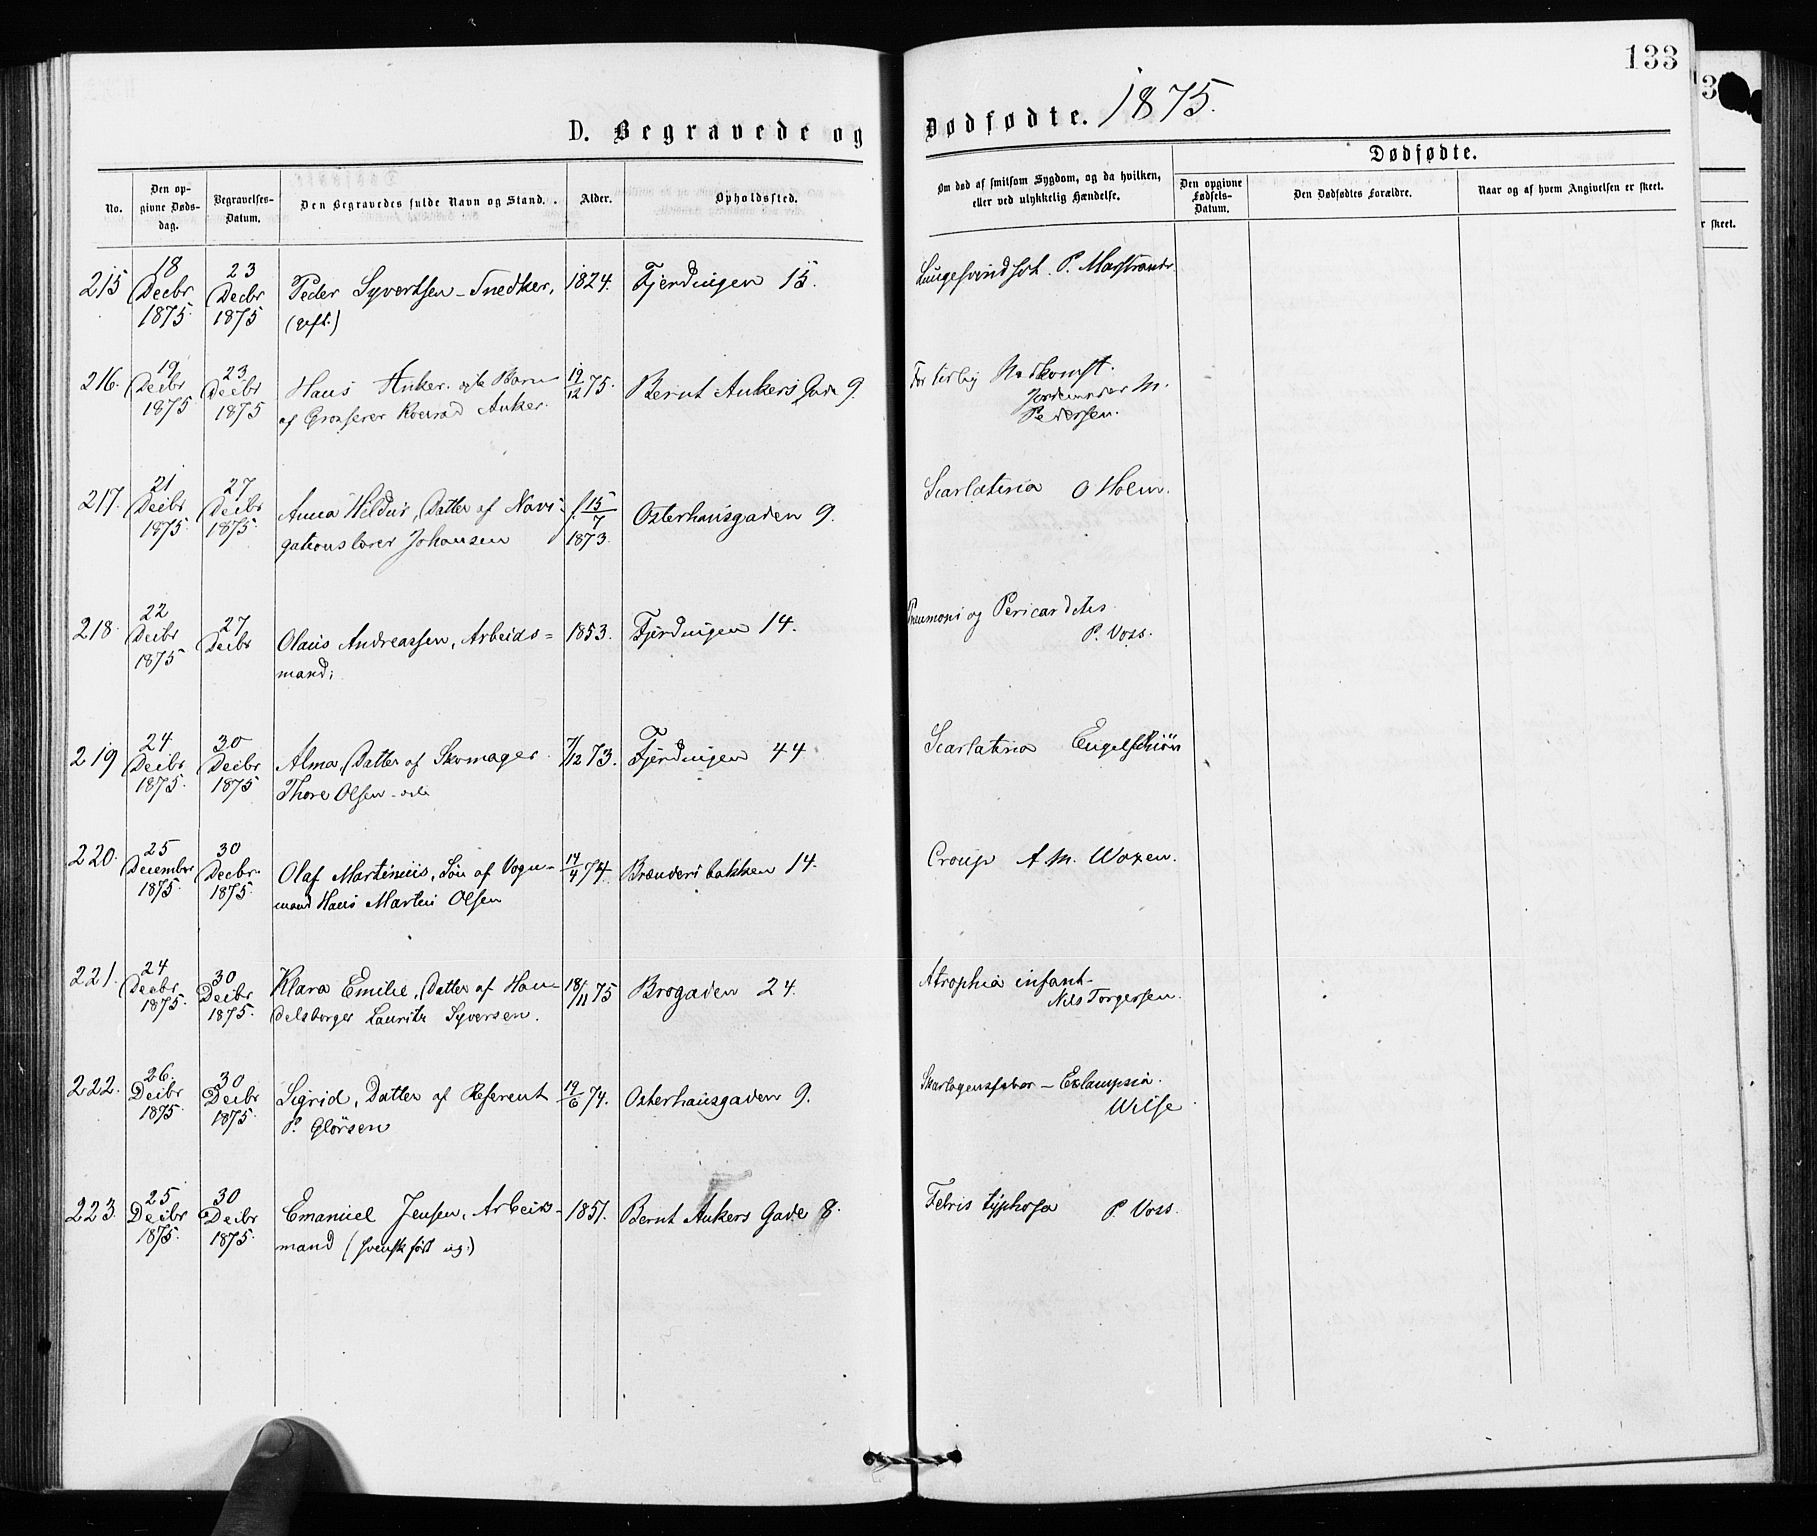 133
D. Begravede og Dødfødte. 1875.
No.
Den opgivne Dødsdag.
Begravelses-Datum.
Den Begravedes fulde Navn og Stand.
Alder.
Opholdssted.
Om død af smitsom Sygdom, og da hvilken, eller ved ulykkelig Hændelse.
Dødfødte.
Den opgivne Fødsels-Datum.
Den Dødfødtes Forældre.
Naar og af hvem Angivelsen er skeet.
r skeet.
215 18 Decbr 1875. 23 Decbr 1875 Peder Syvertsen - Snedker, 1824. Fjerdingen 15. P. Marstrander
(gift.)
216. 19 Decbr 1875 23 Decbr 1875 Hans Anker. Barn 19/12 75. Bernt Ankers Gade 9. For tidlig Nedkomst.
af Grosserer Konrad Anker. Jordemoder M.
Pedersen.
217. 21 Decbr 1875. 27 Decbr 1875. Anna Hildur, Datter af Navi- f. 15/7 1873. Osterhausgaden 9. Scarlatina O Holm.
gationslærer Johansen
218. 22 Decbr 1875 27 Decbr Olaus Andreassen, Arbeids= 1853. Fjerdingen 14. Pneumoni og Pericarditis
mand; P. Voss.
219 24 Decbr 1875. 30 Decbr 1875 Alma, Datter af Skomager 7/12 73. Fjerdingen 44 Scarlatina Engelschiøn
Thore Olsen
220. 25 December 1875. 30 Decbr. 1875. Olaf Martinius, Søn af Vogn- 14/4 74. Brænderibakken 14. Croup A. M. Woxen.
mand Hans Martin Olsen
221. 24 Decbr. 1875. 30 Decbr. 1875. Klara Emilie, Datter af Han- 18/11 75 Brogaden 24. Atrophia infant-
delsborger Lauritz Syversen. Nils Torgersen.
222. 26. Decbr 1875. 30 Decbr 1875. Sigrid, Datter af Referent 19/6 74. Osterhausgaden 9. Skarlagensfeber - Eclampsia.
P. Glørsen Wilse
223. 25 Decbr 1875. 30 Decbr 1875. Emanuel Jensen, Arbeids- 1851. Bernt Ankers Gade 8. Febris typhosa P. Voss.
mand (svensk født ug.)